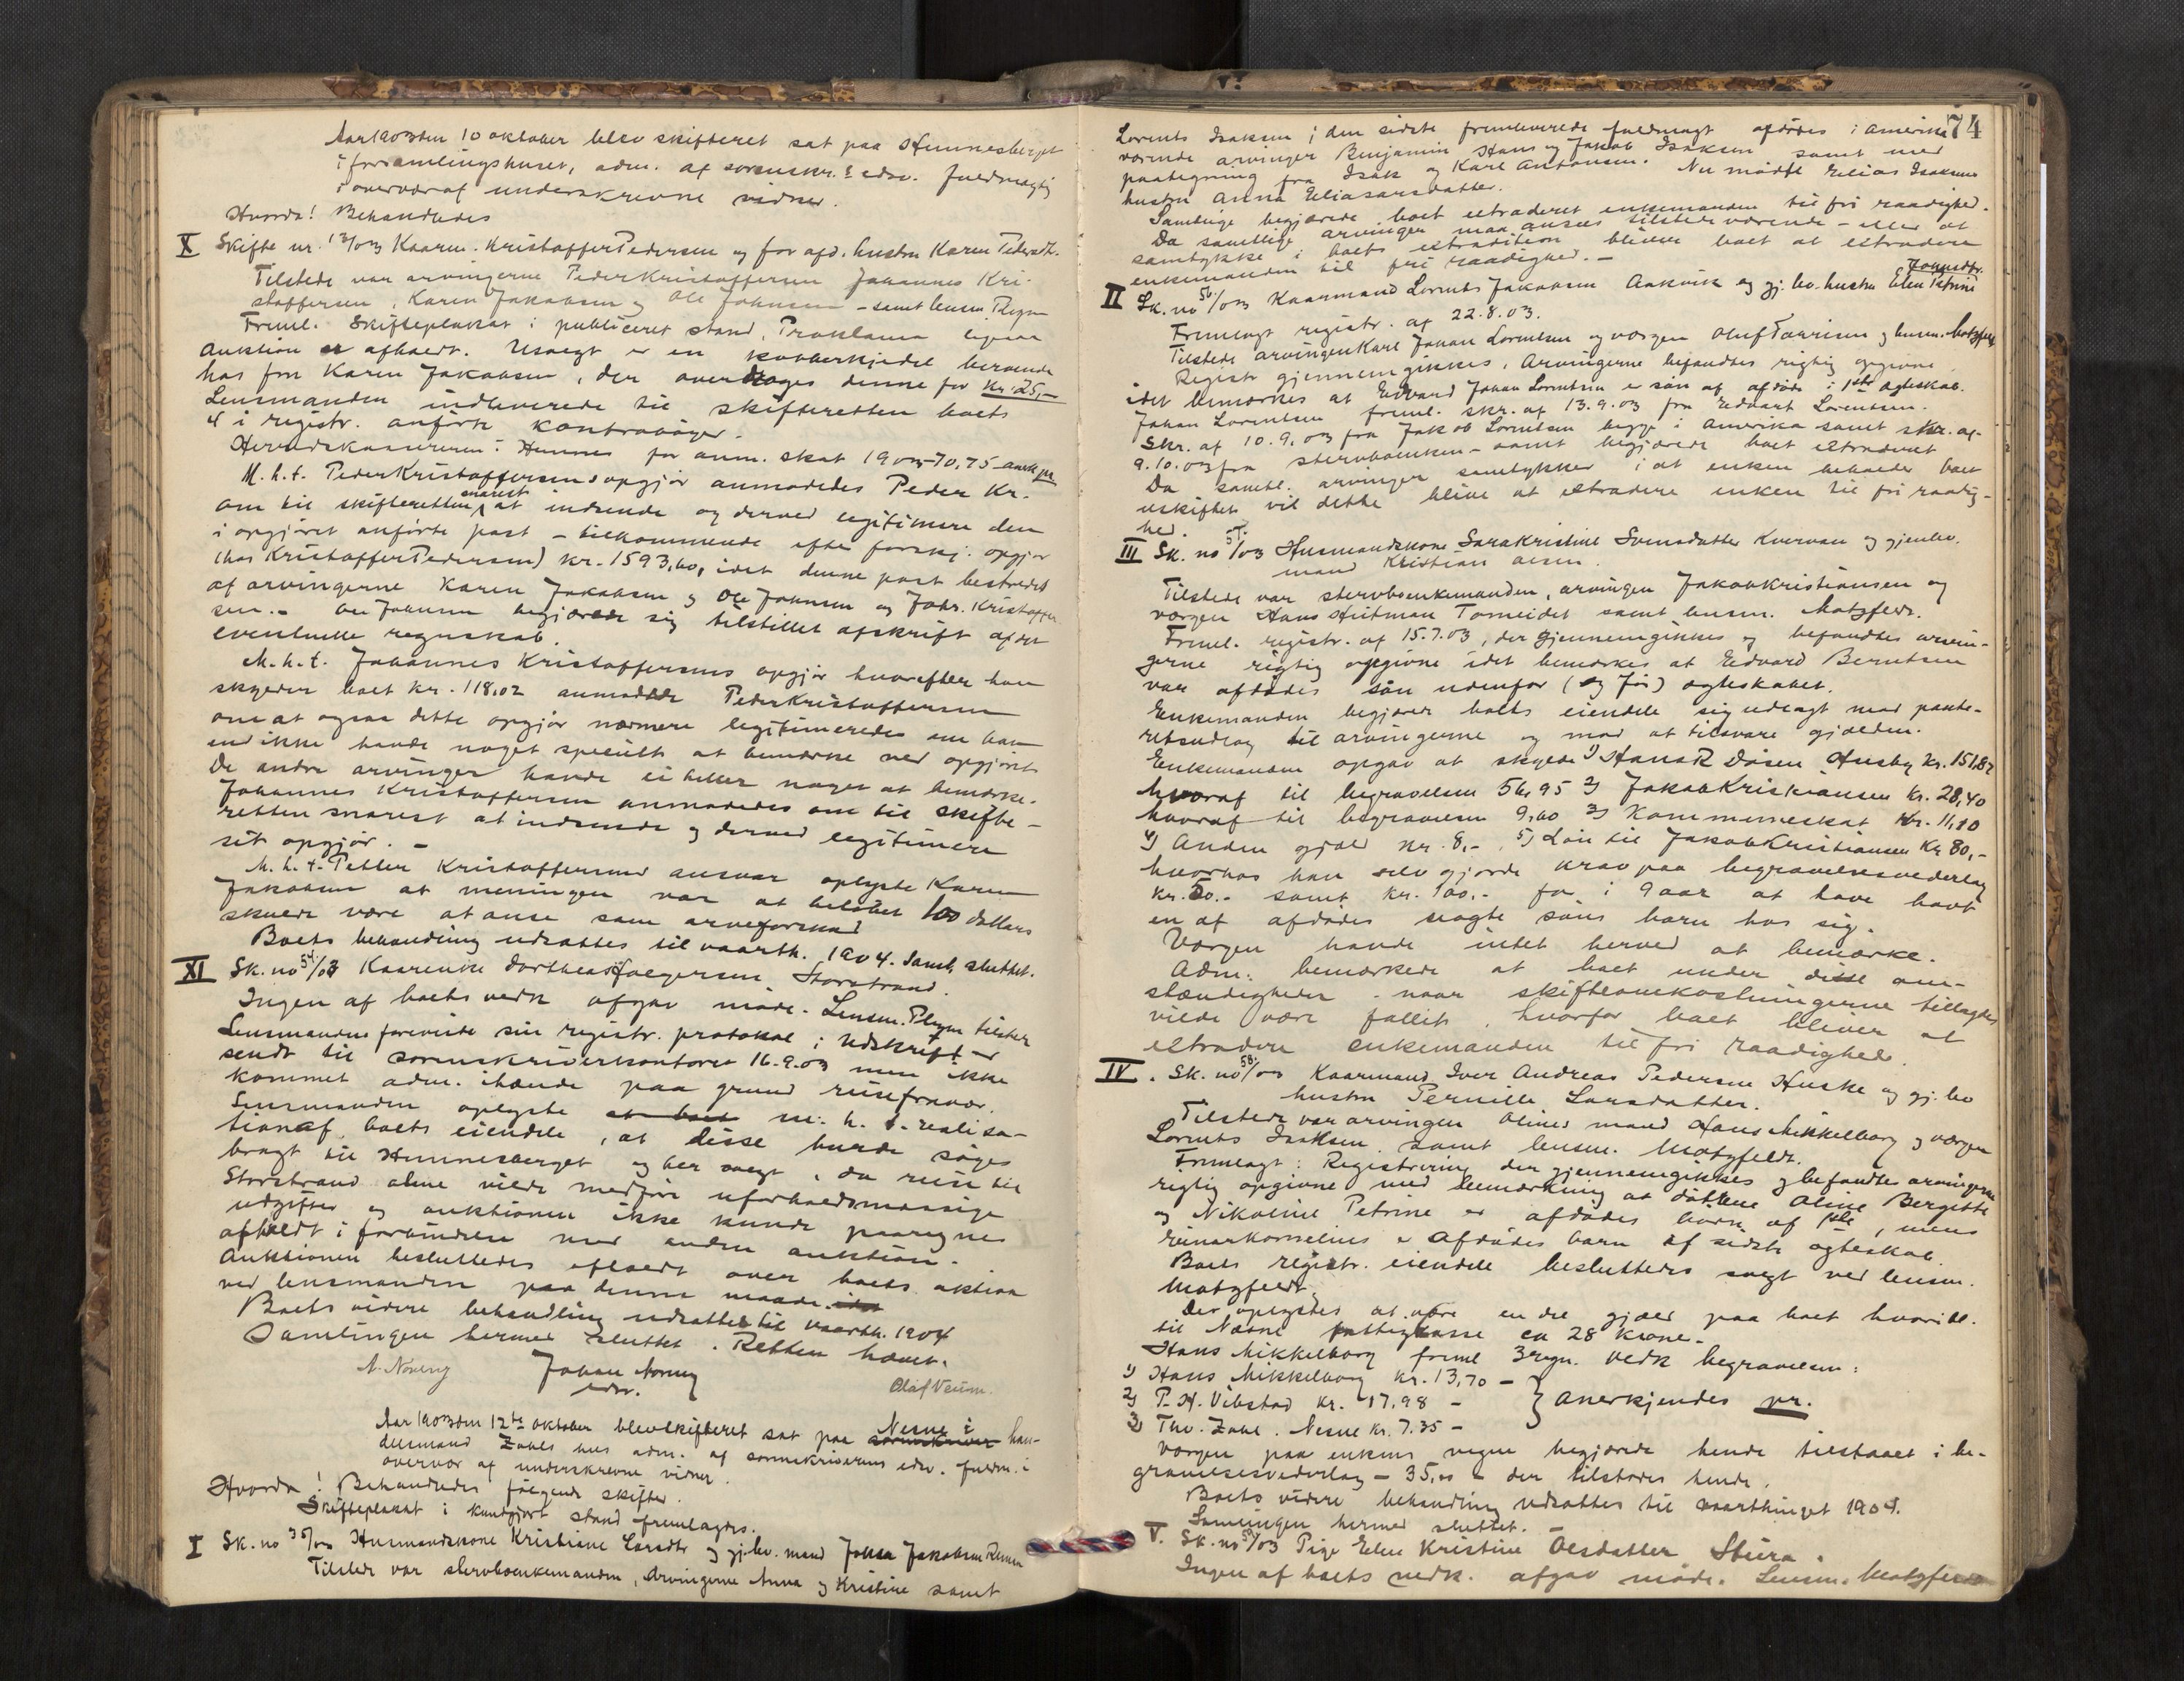 Aar 1903 den 10 oktober blev skifteret sat paa Hemnesberget
i forsamlingshuset, adm. af sorenskr.s edsv. fuldmægtig
i overvær af underskrevne vidner.
Hvorda! Behandledes
X Skifte nr. 12/03 Kaarm. Kristoffer Pedersen og før afd. hustru Karen Pedersdtr.
Tilstede var arvingerne Peder Kristoffersen Johannes Kri-
stoffersen, Karen Jakobsen og Ole Johnsen - samt lensm. Plejm
Freml. Skifteplakat i publiceret stand. Proklama ligesaa
Auktion er afholdt. Usolgt er en kobberkjedel beroende
hos fru Karen Jakobsen, der overdroges denne for kr. 25,-
Lensmanden indleverede til skifteretten boets
4 i registr. anførte kontrabøger.
Herredskassereren i Hemnes for anm. skat 1903 - 70,75 anerk. pr.
M.h.t. Peder Kristoffersens opgjør anmodedes Peder Kr.
om til skifteretten snarest at indsende og derved legitimere den
i opgjøret anførte post - tilkommende efter forskj. opgjør
(hos Kristoffer Pedersen) kr. 1593,60, idet denne post bestredes
af arvingerne Karen Jakobsen og Ole Johnsen og Johs. Kristoffer-
sen. - Ole Johnsen begjærede sig tilstillet afskrift af det
eventuelle regnskab.
M.h.t. Johannes Kristoffersens opgjør hvorefter han
skylder boet kr. 118,02 anmodede Peder Kristoffersen
om at ogsaa dette opgjør nærmere legitimeredes om han
end ikke havde noget specielt at bemærke ved opgjøret
De andre arvinger havde ei heller noget at bemærke.
Johannes Kristoffersen anmodedes om til skifte-
retten snarest at indsende og derved legitimere
sit opgjør. -
M.h.t. Petter Kristoffersens ansvar oplyste Karen
Jakobsen at meningen var at beløbet 100 dollars
skulde være at anse som arveforskud
Boets behandling udsattes til vaarth. 1904. Saml. sluttet.
XI Sk. no 54/03 Kaarenke Dorthea Holgersen Storstrand.
Ingen af boets vedk afgav møde. Lensm. Plejm tilsted
Lensmanden foreviste sin registr. protokol; Udskrift er
sendt til sorenskriverkontoret 16.9.03 men ikke
kommet adm. ihænde paa grund reisefravær.
Lensmanden oplyste at boet m.h.t. realisa-
tion af boets eiendele, at disse burde søges
bragt til Hemnesberget og her solgt, da reise til
Storstrand alene vilde medføre uforholdsmæssige
udgifter og auktionen ikke kunde paaregnes
afholdt i forbindelse med anden auktion.
Auktionen besluttedes afholdt over boets aktiva
ved lensmanden paa denne maade. idet
Boets videre behandling udsattes til vaarth. 1904
Samlingen hermed sluttet. Retten hævet.
A. Noreng Johan Noreng Olaf Veum.
edsv.
Aar 1903 den 12te oktober blev skifteret sat paa sorenskriver Nesne i han-
delsmand Zahls hus adm. af sorenskriverens edsv. fuldm. i
overvær af underskrevne vidner.
Hvorda! Behandledes følgende skifter.
Skifteplakat i kundgjort stand fremlagdes.
I Sk. no 35/03 Husmandskone Kristiane Larsdtr og gj.lev. mand Johan Jakobsen
Tilstede var stervboenkemanden, Arvingerne Anna og Kristine samt
74
Lorents Isaksen; den sidste fremleverede fuldmagt afdødes i Amerika
værende arvinger Benjamin Hans og Jakob Isaksen samt med
paategning fra Isak og Karl Antonsen. Nu mødte Elias Isaksens
hustru Anna Eliasarsdatter.
Samtlige begjærede boet extraderet enkemanden til fri raadighed.
Da samtlige arvinger maa ansees tilstedeværende - eller at
samtykke i boets extradition bliver boet at extradere
enkemanden til fri raadighed. -
II Sk. no 56/03 Kaarmand Lorents Jakobsen Aakvik og gj. lev. hustru Elen Petrine Johnsdtr.
Fremlagt registr. af 22.8.03.
Tilstede arvingen Karl Johan Lorentsen og værgen Oluf Taurisen og lensm. Motzfeldt
Registr gjennemgikkes. Arvingerne befandtes rigtig opgivne
idet bemærkes at Edvard Johan Lorentsen er søn af afdøde i 1ste ægteskab.
Johan Lorentsen freml. skr. af 13.9.03 fra Edvart Lorentsen.
Skr. af 10.9.03 fra Jakob Lorentsen begge i Amerika samt skr. af
9.10.03 fra stervboenken - samt begjærede boet extraderet
Da samtl. arvinger samtykker i at enken beholder boet
uskiftet vil dette blive at extradere enken til fri raadig-
hed.
III Sk. no 57/03 Husmandskone Sara Kristine Svensdatter Kvervan og gjenlev.
mand Kristian Olsen.
Tilstede var stervboenkemanden, arvingen Jakob Kristiansen og
værgen Hans Huitman Tomeidet samt lensm. Motzfeldt.
Freml. registr. af 15.7.03, der gjennemgikkes og befandtes arvin-
gerne rigtig opgivne idet bemærkes at Edvard Berntsen
var afdødes søn udenfor (og før) ægteskabet.
Enkemanden begjærer boets eiendele sig udlagt mod pante-
retsudlæg til arvingerne og mod at tilsvare gjælden.
Enkemanden opgav at skylde 1) Hans R Døsen Husby kr. 151,82
hvoraf til begravelsen 56,95 2) Jakob Kristiansen kr. 28,40
hvoraf til begravelsen 9,60 3) Kommuneskat kr. 11,10
4) Anden gjæld kr. 8,-. 5) Løn til Jakob Kristiansen kr 80,-
hvorhos han selv gjorde krav paa begravelsesvederlag
kr. 20.- samt kr. 100.- for i 9 aar at have havt
en af afdødes uægte søns barn hos sig.
Værgen havde intet herved at bemærke.
Adm. bemærkede at boet under disse om-
stændigheder - naar skifteomkostningerne tillagdes
vilde være fallit, hvorfor boet bliver at
extradere enkemanden til fri raadighed.
IV. Sk. no 58/03 Kaarmand Iver Andreas Pedersen Huske og gj. lev
hustru Pernille Larsdatter.
Tilstede var arvingen Olines mand Hans Mikkelborg og værgen
Lorents Isaksen samt lensm. Motzfeldt.
Fremlagt: Registrering der gjennemgikkes og befandtes arvingerne
rigtig opgivne med bemærkning at døttrene Oline Bergitte
og Nikoline Petrine er afdødes børn af 1ste, mens
Einar Kornelius er afdødes barn af sidste ægteskab.
Boets registr. eiendele besluttedes solgt ved lensm.
Motzfeldt.
Der oplystes at være en del gjæld paa boet hvoribl.
til Nesne fattigkasse ca 28 krone.
Hans Mikkelborg freml 3 regn. vedk begravelsen:
1) Hans Mikkelborg kr. 13,70 -
2) P. H. Vibstad kr. 17,98 - } anerkjendes pr.
3) Thv. Zahl. Nesne kr. 7.35 -
Værgen paa enkens vegne begjærede hende tilstaaet i be-
gravelsesvederlag - 35,00 - der tilstodes hende.
Boets videre behandling udsattes til vaarthinget 1904.
Samlingen hermed sluttet.
V. Sk. no 59/03 Pige Elen Kristine Olsdatter Stura.
Ingen af boets vedk. afgav møde. Lensm. Motzfeldt